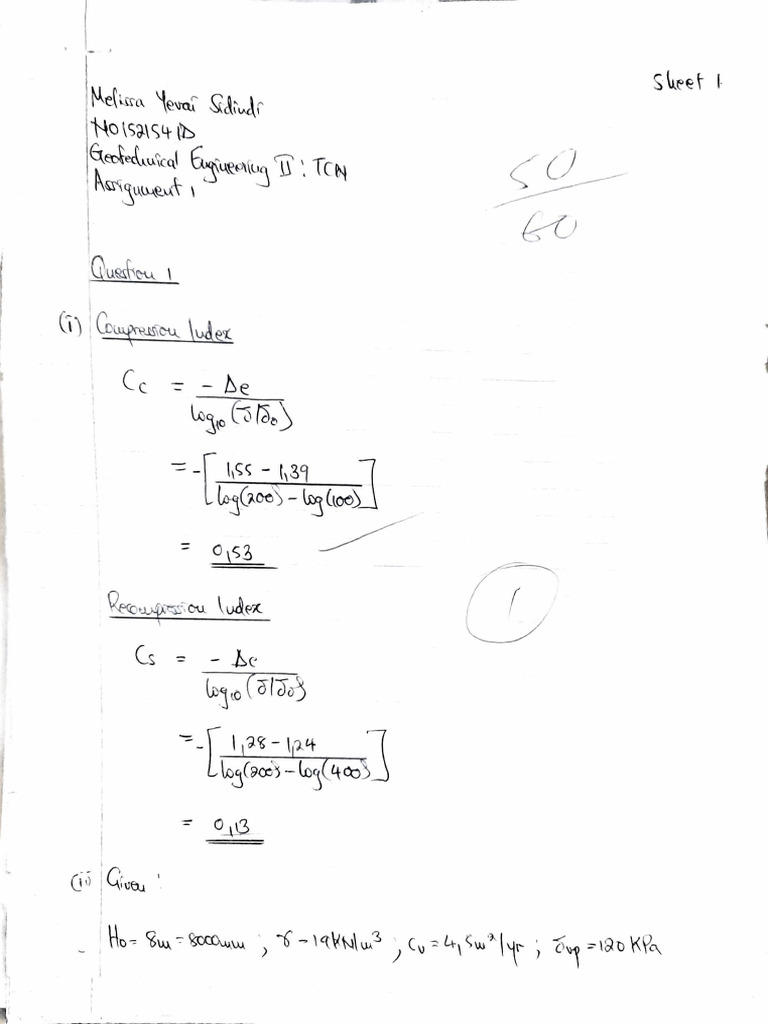 Sheet 1
Melissa Yevai Sidindi
N0152154D
Geotechnical Engineering II : TCN
Assignment 1
50/60
Question 1
(i) Compression Index
Cc = -Δe / log10 (σ̄/σ̄0)
= -[1,55 - 1,39 / log(200) - log(100)]
= 0,53
1
Recompression Index
Cs = -Δe / log10 (σ̄/σ̄0)
= -[1,28 - 1,24 / log(200) - log(400)]
= 0,13
(ii) Given :
H0 = 8m = 8000mm ; γ - 19kN/m³ ; Cv = 4,5m²/yr ; σ̄vp = 120 KPa